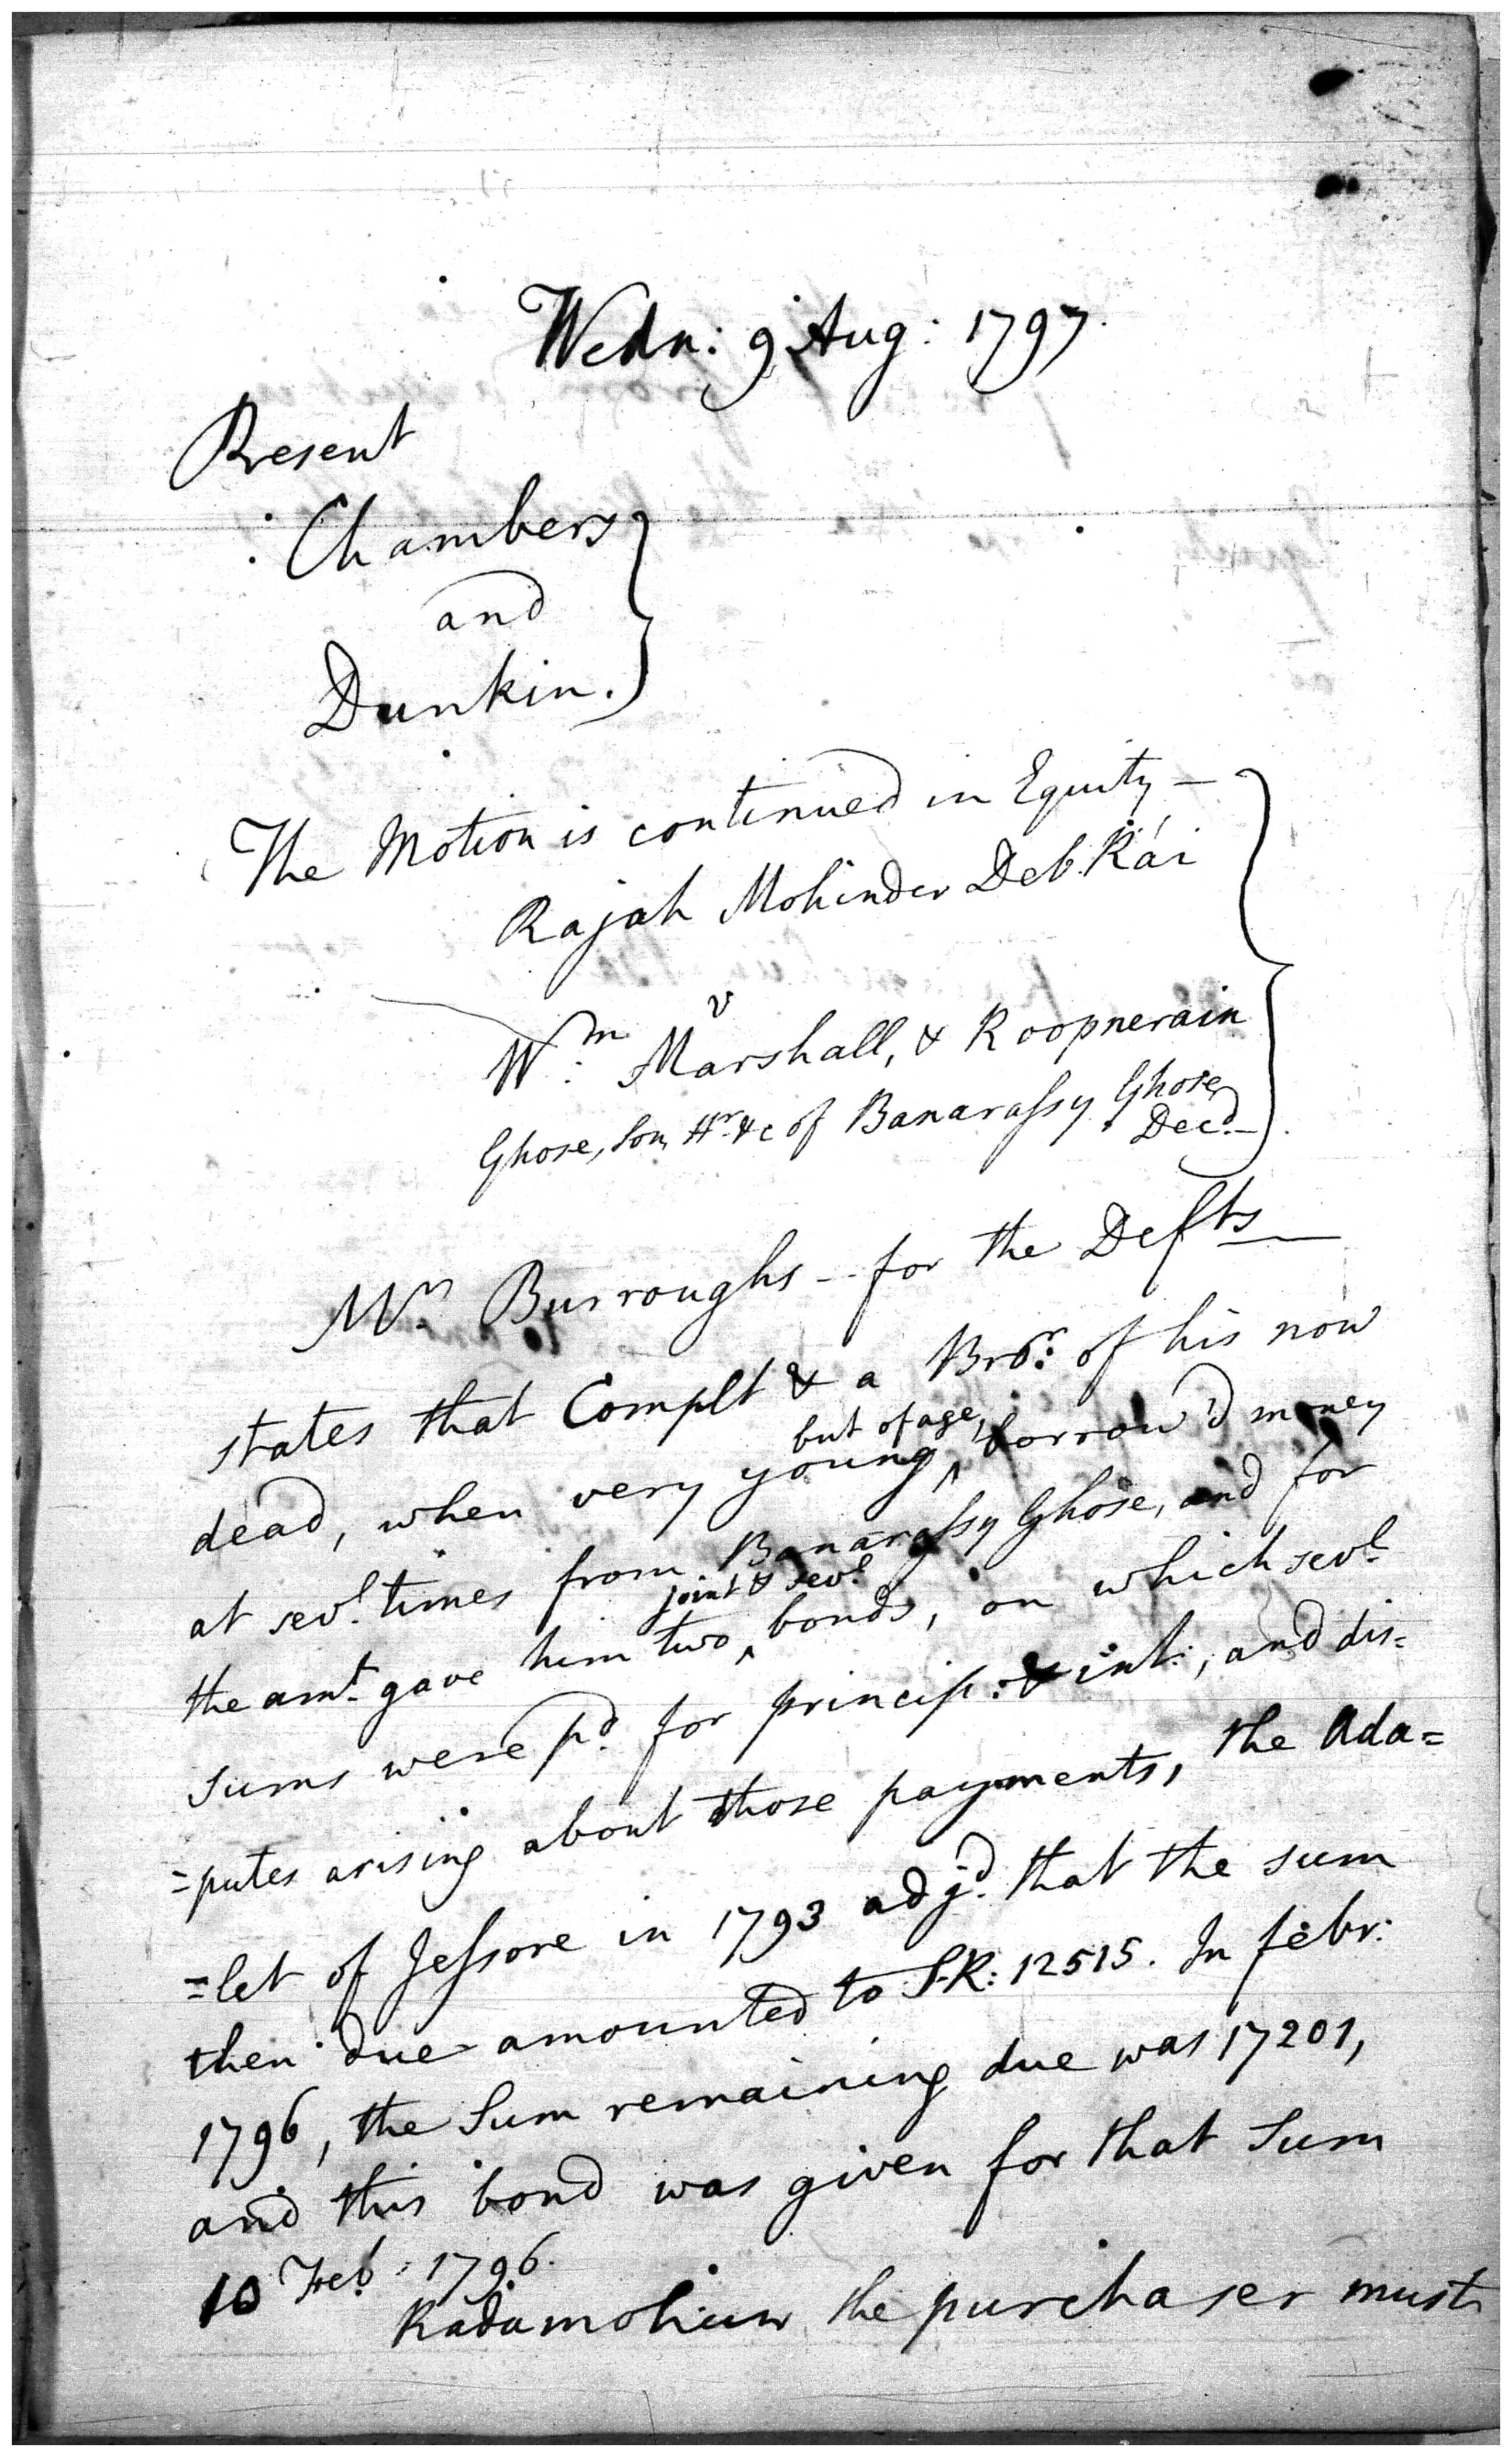 Wedn: 9 Aug: 1797.
Present
Chambers
and
Dunkin.
The Motion is continued in Equity —
Rajah Mohinder Deb. Rái
v
Wm. Marshall, & Roopnerain
Ghose, Son, Hr. &c of Banarassy Ghose,
Decd.
Mr. Burroughs -- for the Defts
states that Complt & a Bror. of his now
but of age,
dead, when very young ^ borrow'd money
at sevl. times from Banarassy Ghose, and for
joint & sevl.
the amt. gave him two ^ bonds, on which sevl.
sums were pd. for princip: & int:, and dis=
=putes arising about those payments, the Ada=
=let of Jessore in 1793 adjd. that the sum
then due amounted to S.R: 12515. In febr:
1796, the Sum remaining due was 17201,
and this bond was given for that Sum
10 Feb: 1796.
Radamohun the purchaser must